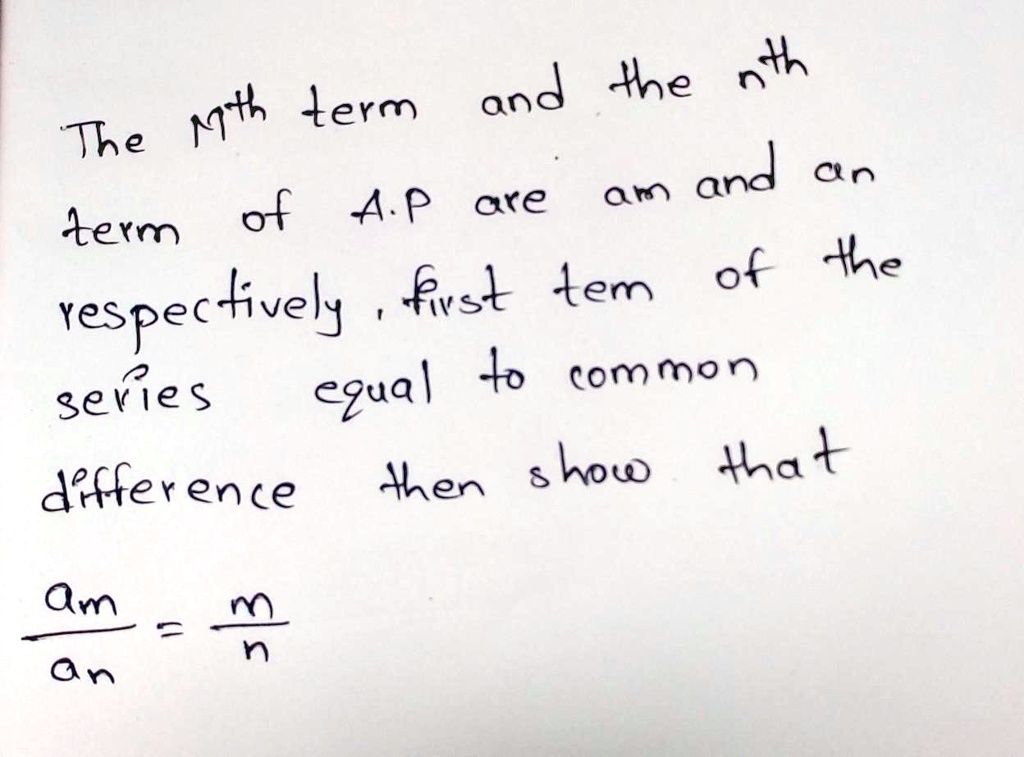 The Mth term and the nth
term of A.P are am and an
respectively, first tem of the
series equal to common
difference then show that
am/an = m/n